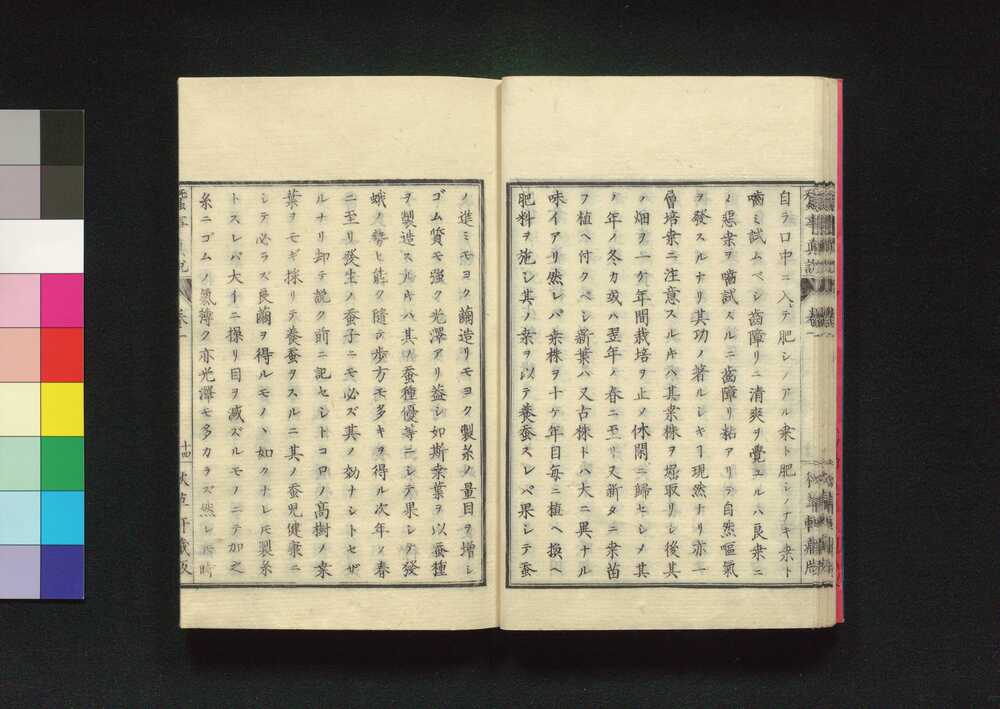 自ラ口中ニ入テ肥シノアル桒ト肥シノナキ桒ト
嚙ミ試ムベシ齒障リニ清爽ヲ覺ユルハ良桒ニ
ノ惡桒ヲ嚙試スルニ齒障リ粘アリテ自然嘔氣
ヲ發スルナリ其功ノ著ルシキヿ現然ナリ亦一
層培桒ニ注意スルキハ其桒株ヲ堀取リシ後其
ノ畑ヲ一ケ年間栽培ヲ止ノ休閑ニ歸セシメ其
ノ年ノ冬カ或ハ翌年ノ春ニ至リ又新タニ桒苗
フ植ヘ付クベシ新葉ハ又古株トハ大ニ異ナル
味イアリ然レバ桒株ヲ十ケ年目毎ニ植ヘ換ヘ
肥料ヲ施シ其ノ桒ヲ以テ養蚕スレバ果シテ蚕
ノ進ミモヨク繭造リモヨク製糸ノ量目ヲ增シ
ゴム質モ強ク光澤アリ益シ如斯桒葉ヲ以蚕種
ヲ製造スルキハ其ノ蚕種優等ニシテ果シテ發
蛾ノ勢ヒ能ク隨テ歩方モ多キヲ得ル次年ノ春
ニ至リ發生ノ蚕子ニモ必ズ其ノ効ナシトセザ
ルナリ却テ說ク前ニ記セシトコロノ高樹ノ桒
葉ヲモギ採リテ養蚕ヲスルニ其ノ蚕兒健康ニ
シテ必ラズ良繭ヲ得ルモノヽ如クナレモ製糸
トスレバ大イニ操リ目ヲ减ズルモノニテ加之
糸ニゴムノ氣薄ク亦光澤モ多カラズ然シ
卷一
十四